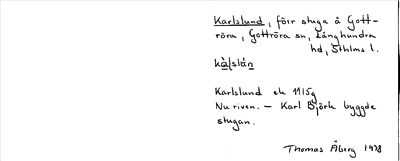 Karlslund, förr stuga å Gott-
röra, Gottröra sn, Långhundra
hd, Sthlms l.
kàlslán
Karlslund ek 11I5g
Nu riven. – Karl Björk byggde
stugan.
Thomas Åberg 1978